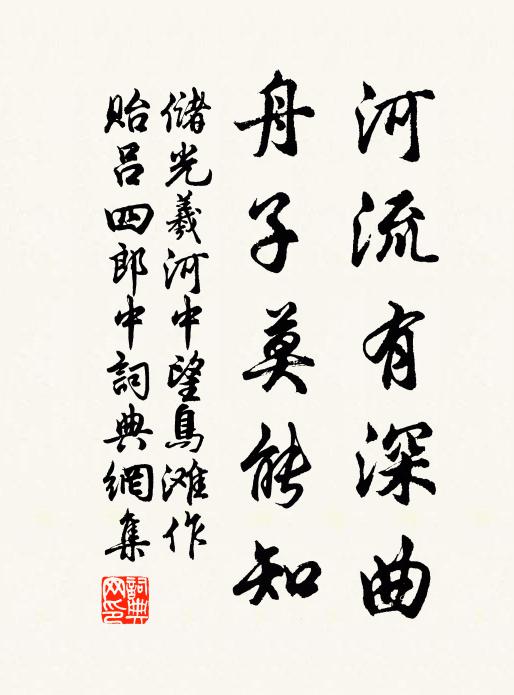 河流有深曲
舟子莫能知
儲光羲河中望鳥滩作
貽吕四郎中詞典網集
詞典网印